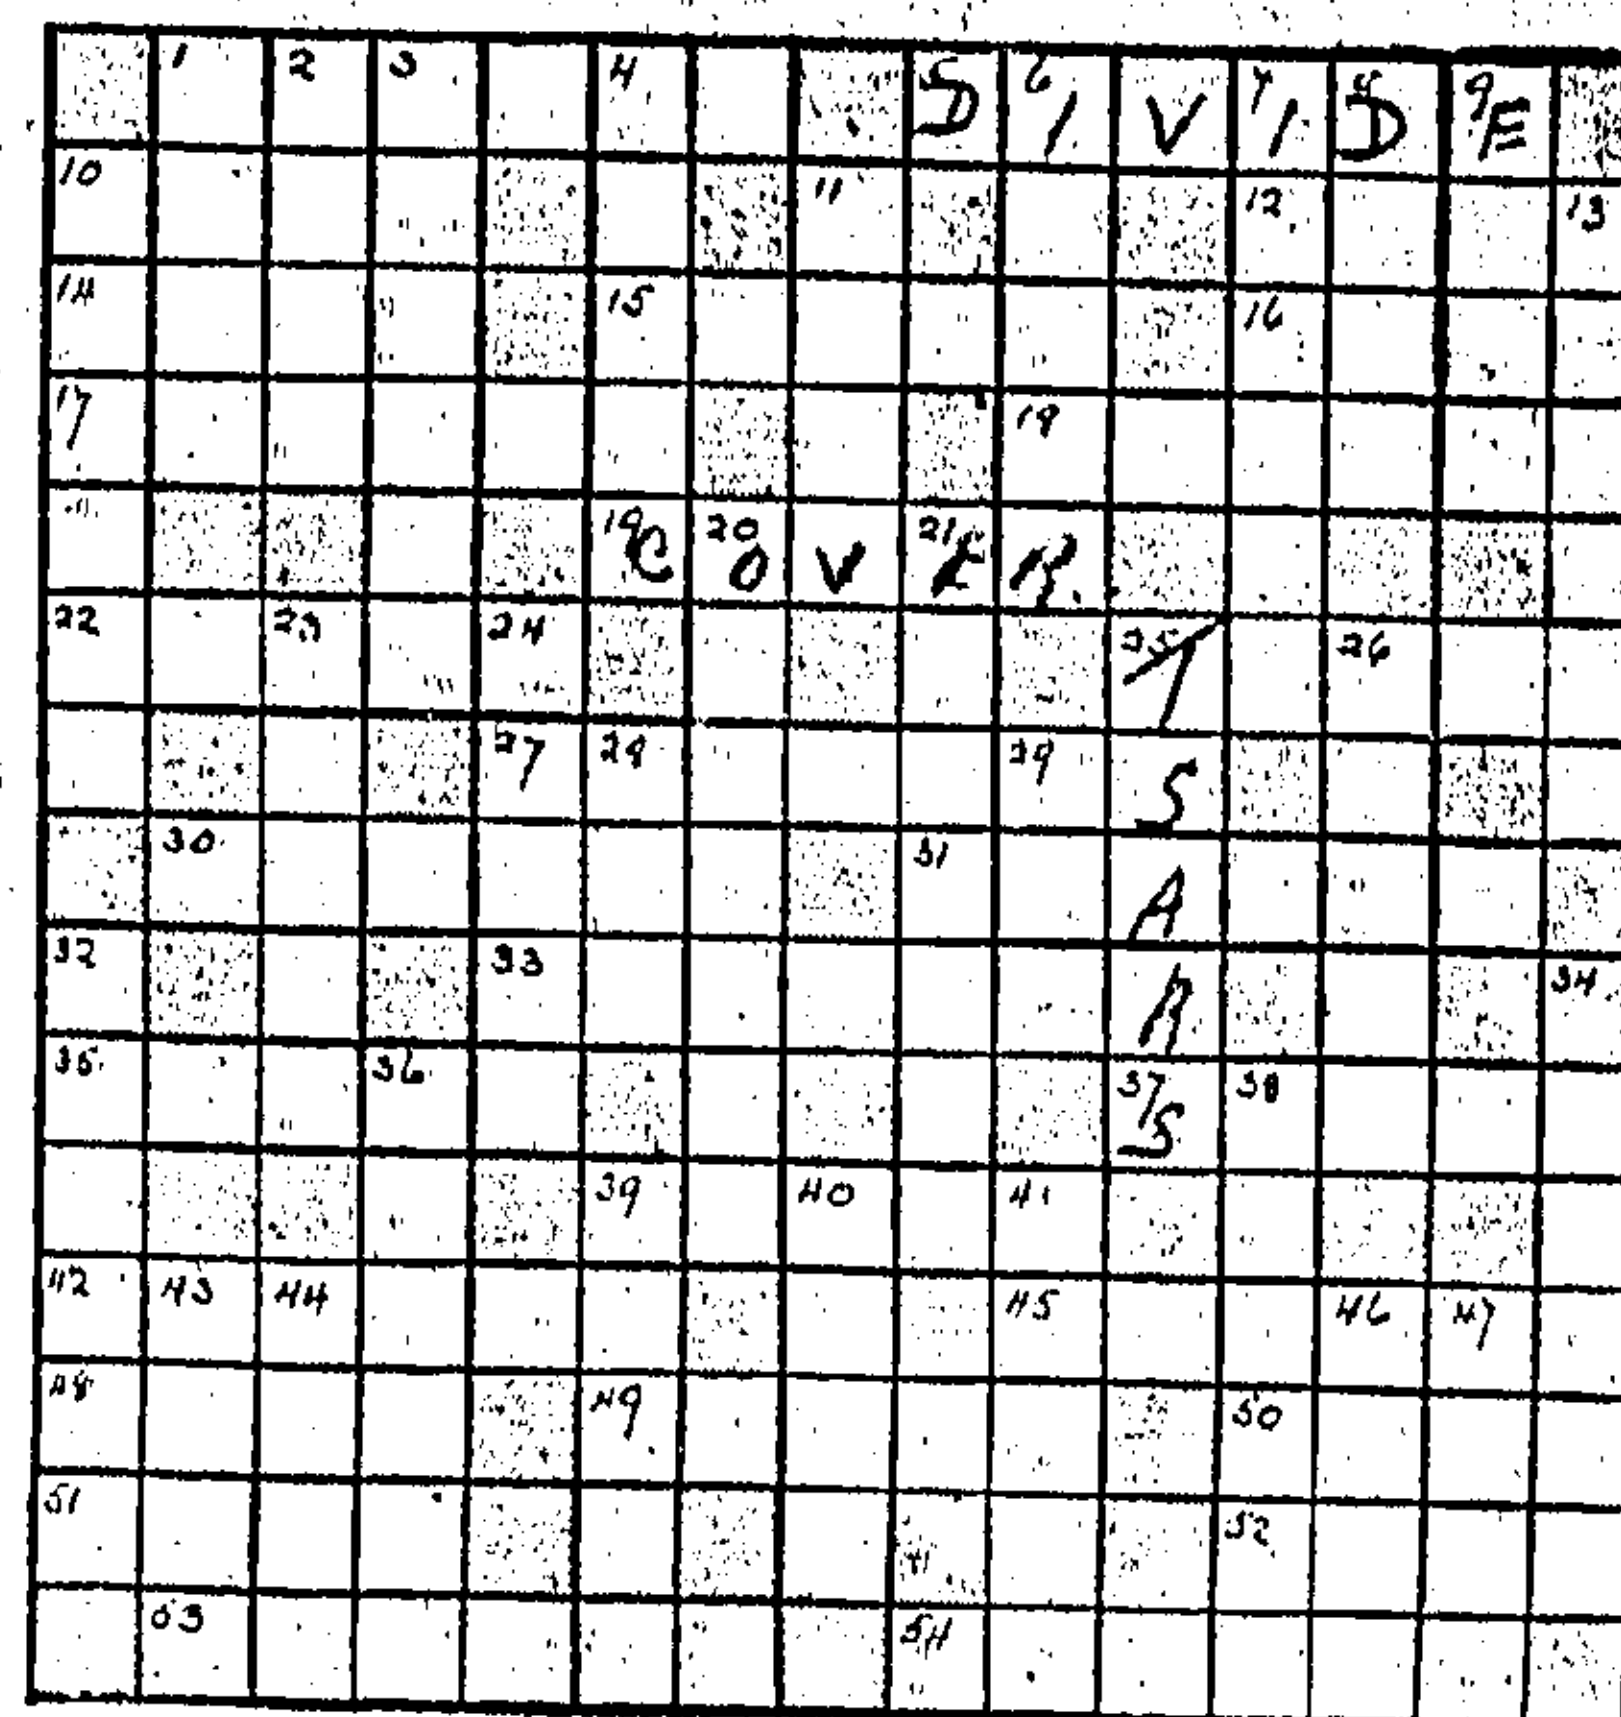 1 2 3 4 5 D 6 I V 7 I 8 D 9 E
10 11 12 13
14 15 16
17 18
19 C 20 O V 21 E R
22 23 24 25 T 26
27 28 29 S
30 31 A
32 33 R 34
35 36 37 S 38
39 40 41
42 43 44 45 46 47
48 49 50
51 52
53 54